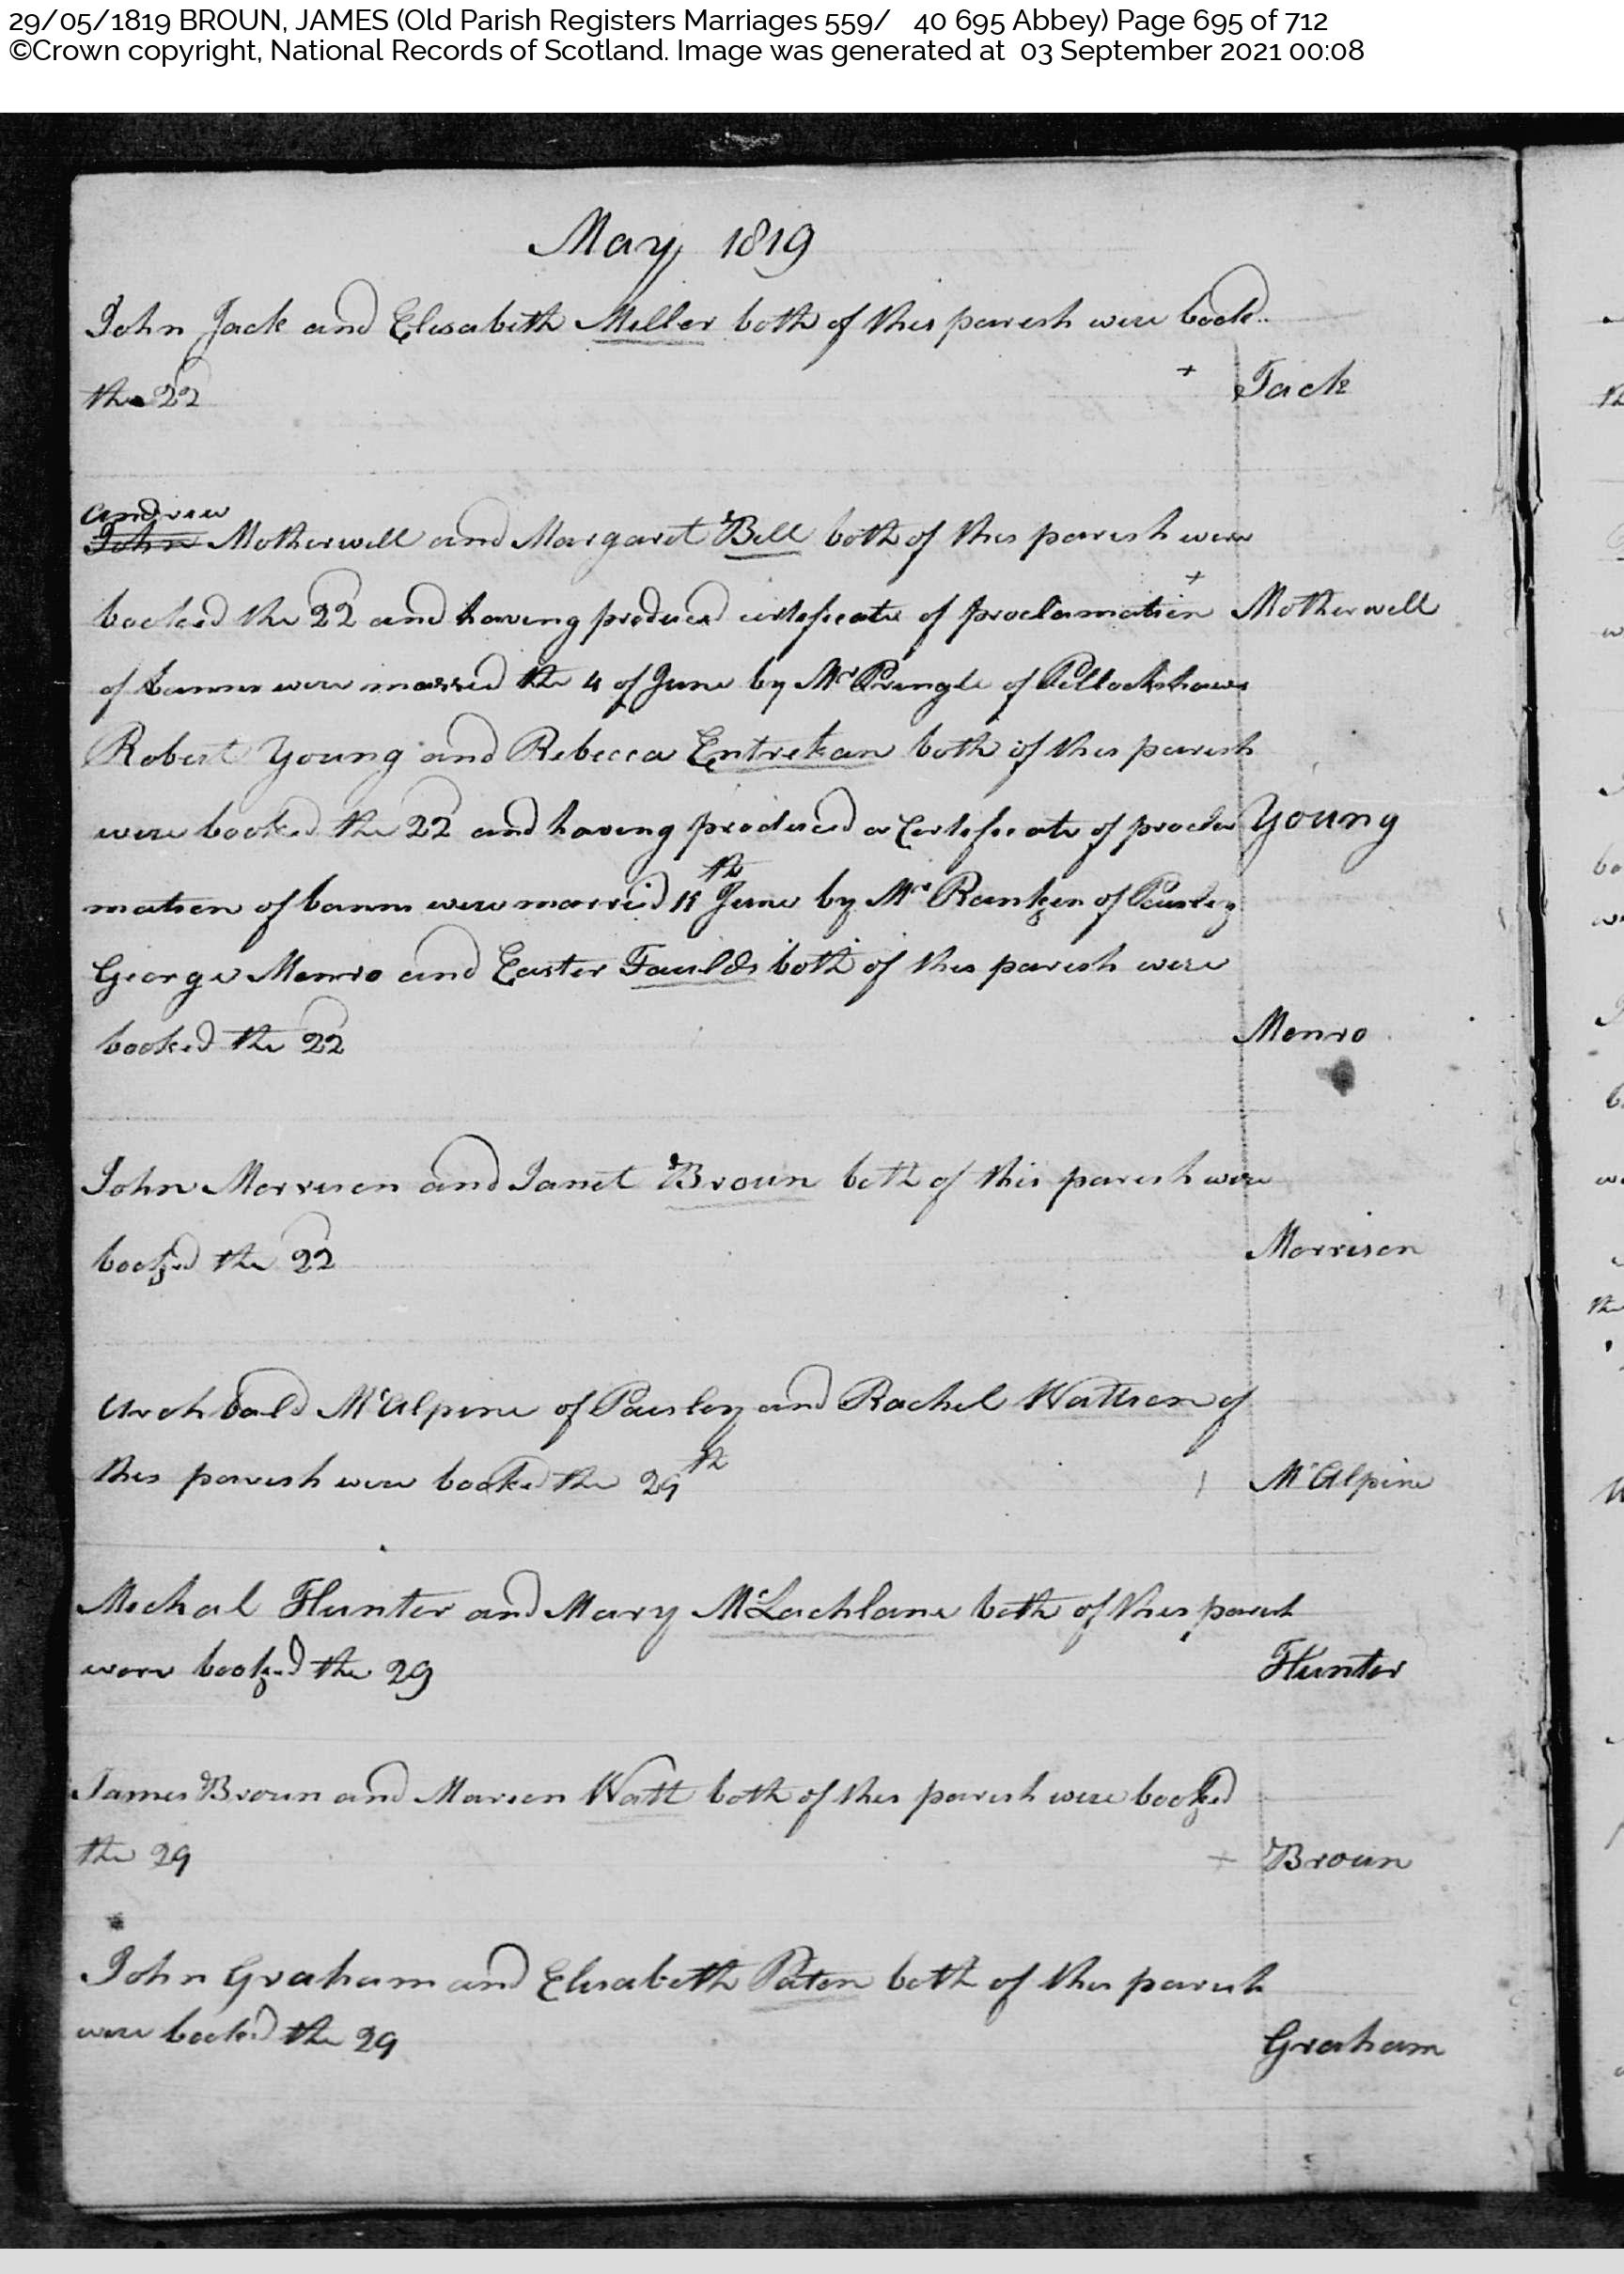 29/05/1819 BROUN, JAMES (Old Parish Registers Marriages 559/ 40 695 Abbey) Page 695 of 712
©Crown copyright, National Records of Scotland. Image was generated at 03 September 2021 00:08
May 1819
John Jack and Elisabeth Miller both of this parish were book..
the 22
Jack
Andrew
John Motherwell and Margaret Bell both of this parish were
booked the 22 and having produced certificate of proclamation
Motherwell
of banns were married the 4 of June by Mr Pringle of Pollockshaws
Robert Young and Rebecca Entrekan both of this parish
were booked the 22 and having produced a Certificate of procla
Young
mation of banns were married 11th June by Mr Rankin of Paisley
George Monro and Easter Faulds both of this parish were
booked the 22
Monro
John Morrison and Janet Broun both of this parish were
booked the 22
Morrison
Archbald McAlpine of Paisley and Rachel Wattson of
this parish were booked the 29th
McAlpine
Michal Hunter and Mary McLachlane both of this parish
were booked the 29
Hunter
James Broun and Marion Watt both of this parish were booked
the 29
+ Broun
John Graham and Elisabeth Paton both of this parish
were booked the 29
Graham